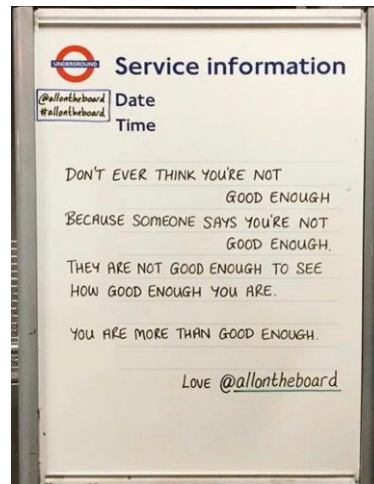 UNDERGROUND
Service information
@allontheboard
#allontheboard
Date
Time
DON'T EVER THINK YOU'RE NOT
GOOD ENOUGH
BECAUSE SOMEONE SAYS YOU'RE NOT
GOOD ENOUGH.
THEY ARE NOT GOOD ENOUGH TO SEE
HOW GOOD ENOUGH YOU ARE.
YOU ARE MORE THAN GOOD ENOUGH.
LOVE @allontheboard